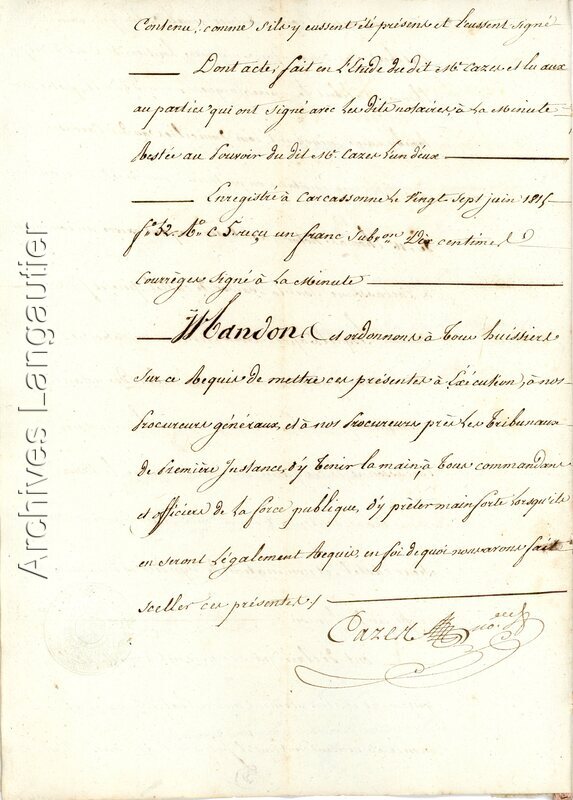 Contenu, comme s'ils y eussent été présens et l'eussent signé
Dont acte, fait en l'Etude du dit Me. Cazes et lu aux
au parties qui ont signé avec les dits notaires, à la Minute
Restée au Pouvoir du dit Me. Cazes l'un d'eux
Enregistré à Carcassonne le vingt sept juin 1815
fo. 52. Ro. C 5. reçu un franc Subon. Dix centimes
Courrèges signé à la Minute
Mandons et ordonnons à Tous huissiers
Sur ce Requis de mettre ces présentes à Exécution, à nos
Procureurs généraux, et à nos Procureurs près les Tribunaux
de Première Instance, d'y Tenir la main, à Tous commandans
et officiers de la force publique, d'y prêter main forte Lorsqu'ils
en seront Légalement Requis, en foi de quoi nous avons fait
sceller ces présentes /
Cazes nore
Archives Langautier